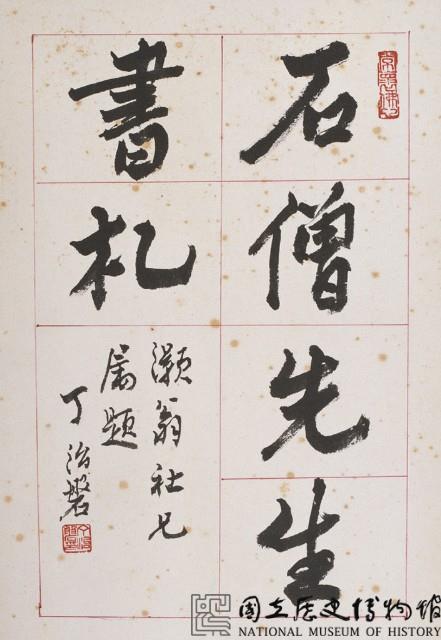 石僧先生
書札
灝翁社兄
屬題
丁治磐
國立歷史博物館
NATIONAL MUSEUM OF HISTORY